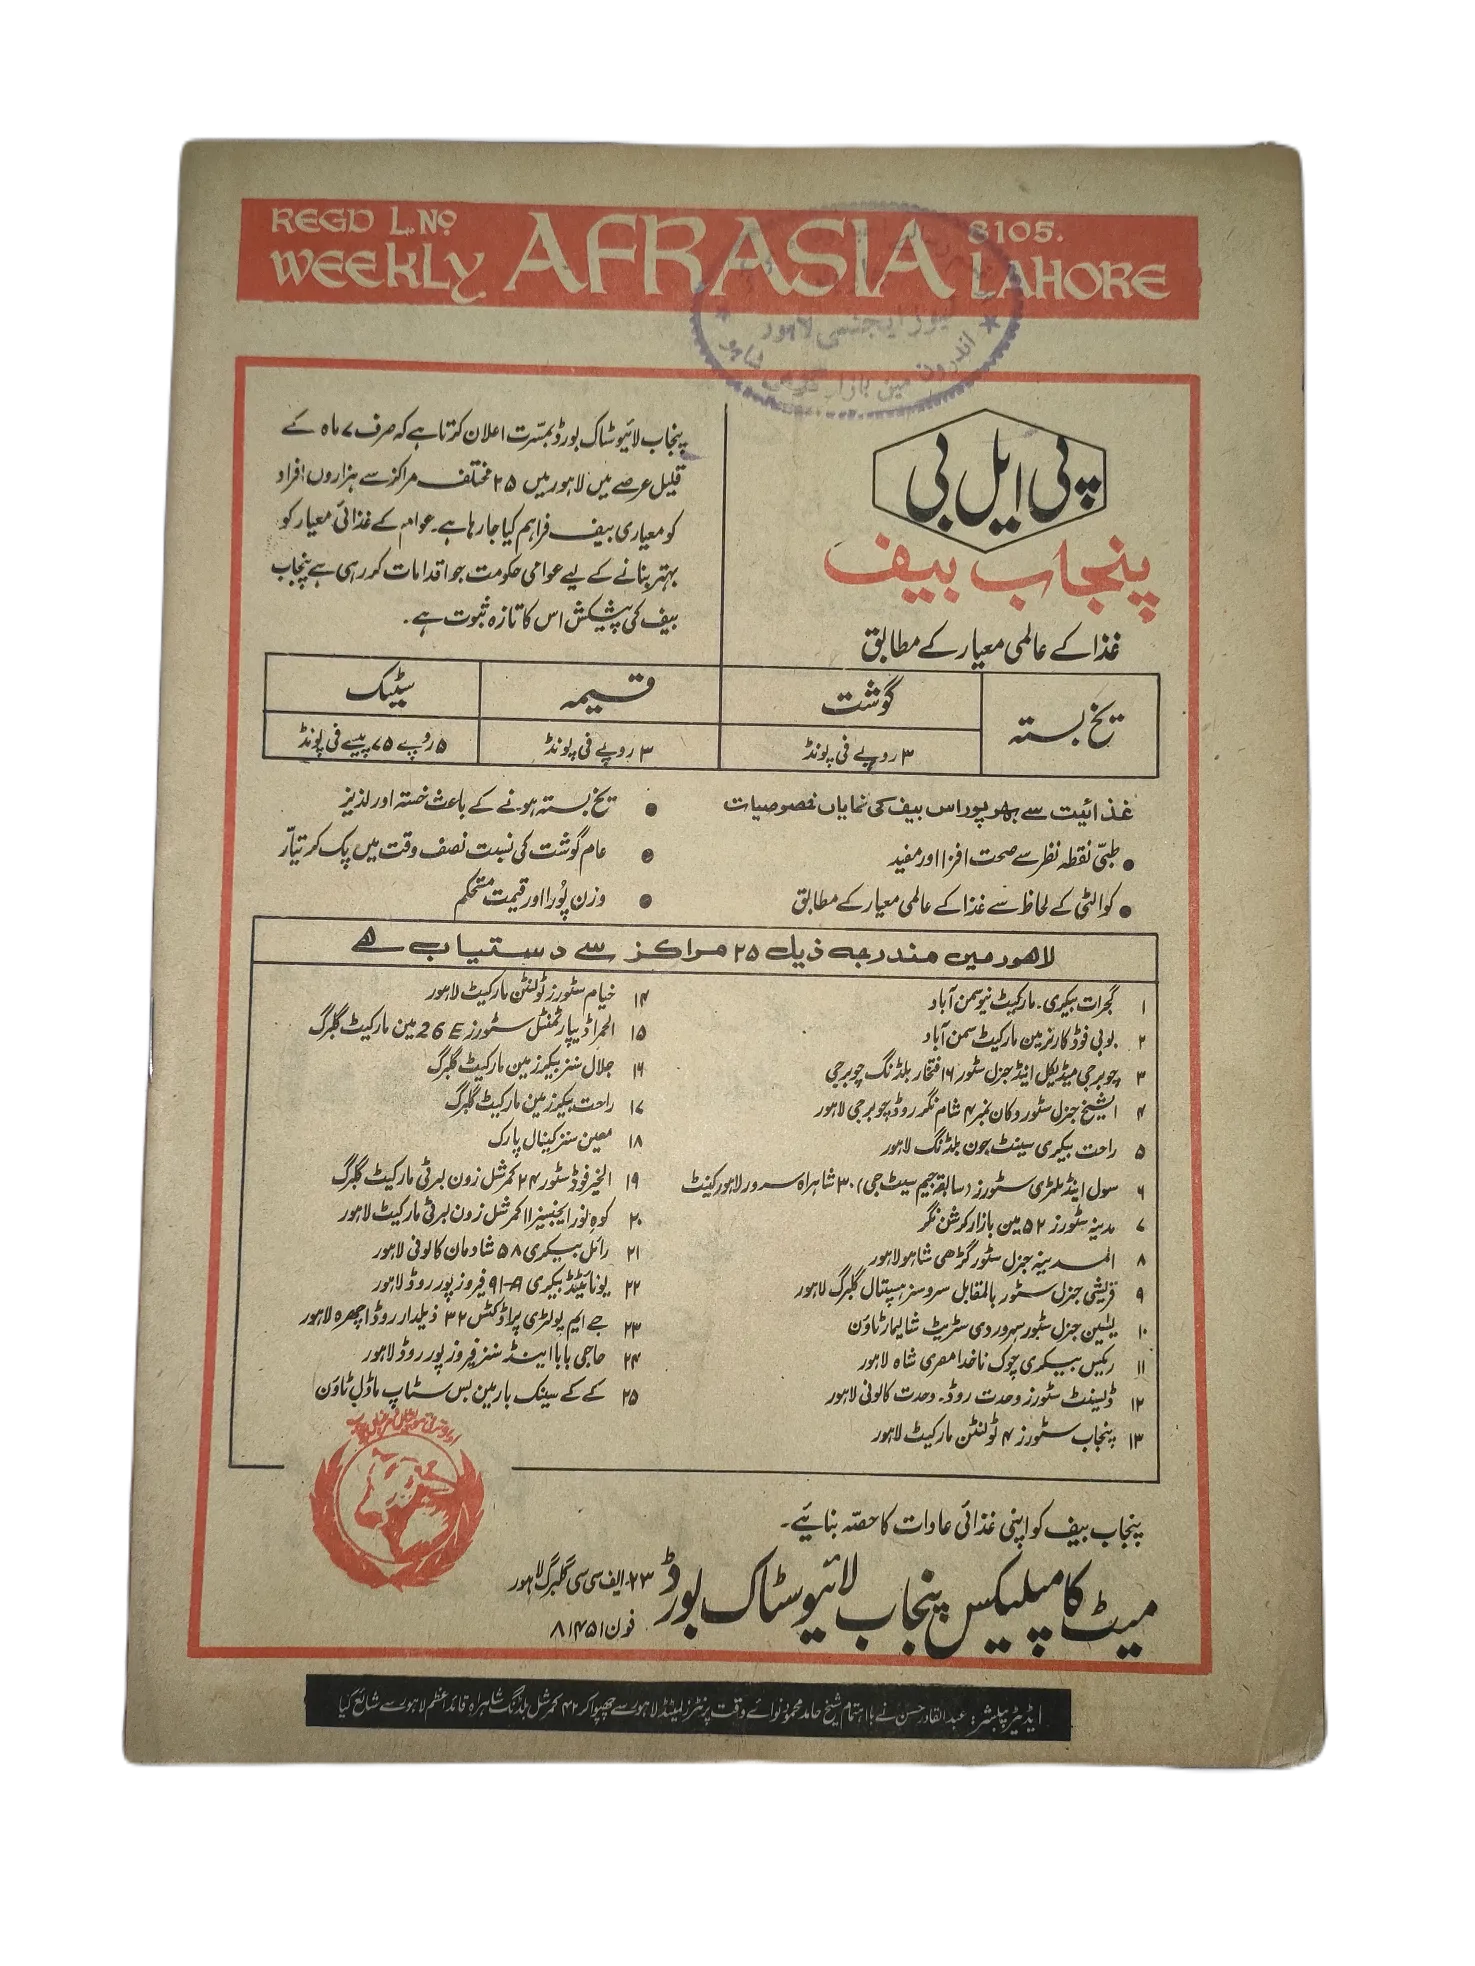 REGD L. No. 8105.
WEEKLY AFRASIA LAHORE
نیوز ایجنسی لاہور
اندرون مین بازار گڑھی شاہو
پی ایل بی
پنجاب بیف
غذا کے عالمی معیار کے مطابق
پنجاب لائیوسٹاک بورڈ بمسّرت اعلان کرتا ہے کہ صرف ۷ ماہ کے
قلیل عرصے میں لاہور میں ۲۵ مختلف مراکز سے ہزاروں افراد
کو معیاری بیف فراہم کیا جا رہا ہے۔ عوام کے غذائی معیار کو
بہتر بنانے کے لیے عوامی حکومت جو اقدامات کر رہی ہے پنجاب
بیف کی پیشکش اس کا تازہ ثبوت ہے۔
یخ بستہ
گوشت
قیمہ
سٹیک
۳ روپے فی پونڈ
۳ روپے فی پونڈ
۵ روپے ۷۵ پیسے فی پونڈ
غذائیت سے بھرپور اس بیف کی نمایاں خصوصیات
● طبّی نقطہ نظر سے صحت افزا اور مفید
● کوالٹی کے لحاظ سے غذا کے عالمی معیار کے مطابق
● یخ بستہ ہونے کے باعث خستہ اور لذیز
● عام گوشت کی نسبت نصف وقت میں پک کر تیّار
● وزن پُورا اور قیمت مستحکم
لاہور میں مندرجہ ذیل ۲۵ مراکز سے دستیاب ہے
۱ گجرات بیکری۔ مارکیٹ نیو سمن آباد
۲ بوبی فوڈ کارنر مین مارکیٹ سمن آباد
۳ چوبرجی میڈیکل اینڈ جنرل سٹور ۱۶ افتخار بلڈنگ چوبرجی
۴ الشیخ جنرل سٹور دکان نمبر ۴ شام نگر روڈ چوبرجی لاہور
۵ راحت بیکری سینٹ جون بلڈنگ لاہور
۶ سول اینڈ ملٹری سٹورز (سابقہ جیم سیٹ جی) ۳۰ شاہراہ سرور لاہور کینٹ
۷ مدینہ سٹورز ۵۲ مین بازار کرشن نگر
۸ المدینہ جنرل سٹور گڑھی شاہو لاہور
۹ قریشی جنرل سٹور بالمقابل سروسز ہسپتال گلبرگ لاہور
۱۰ یٰسین جنرل سٹور سہروردی سٹریٹ شالیمار ٹاؤن
۱۱ ریکس بیکری چوک ناخدا مصری شاہ لاہور
۱۲ ڈیسنٹ سٹورز وحدت روڈ۔ وحدت کالونی لاہور
۱۳ پنجاب سٹورز ۴ ٹولنٹن مارکیٹ لاہور
۱۴ خیام سٹورز ٹولنٹن مارکیٹ لاہور
۱۵ الحمرا ڈیپارٹمنٹل سٹورز 26 E مین مارکیٹ گلبرگ
۱۶ جلال سنز بیکرز مین مارکیٹ گلبرگ
۱۷ راحت بیکرز مین مارکیٹ گلبرگ
۱۸ معین سنز کینال پارک
۱۹ الخیر فوڈ سٹور ۲۴ کمرشل زون لبرٹی مارکیٹ گلبرگ
۲۰ کوہ نور ایجنسیز ۱۱ کمرشل زون لبرٹی مارکیٹ لاہور
۲۱ رائل بیکری ۵۸ شادمان کالونی لاہور
۲۲ یونائیٹڈ بیکری 91-A فیروز پور روڈ لاہور
۲۳ جے ایم پولٹری پراڈکٹس ۳۲ ذیلدار روڈ اچھرہ لاہور
۲۴ حاجی بابا اینڈ سنز فیروز پور روڈ لاہور
۲۵ کے کے سینک بار مین بس سٹاپ ماڈل ٹاؤن
پنجاب بیف کو اپنی غذائی عادات کا حصّہ بنائیے۔
میٹ کامپلیکس پنجاب لائیوسٹاک بورڈ
۲۳۔ایف سی سی گلبرگ لاہور
فون ۸۱۴۵۱
ایڈیٹر پبلشر: عبدالقادر حسن نے بااہتمام شیخ حامد محمود نوائے وقت پرنٹرز لمیٹڈ لاہور سے چھپوا کر ۴۲ کمرشل بلڈنگ شاہراہ قائداعظم لاہور سے شائع کیا